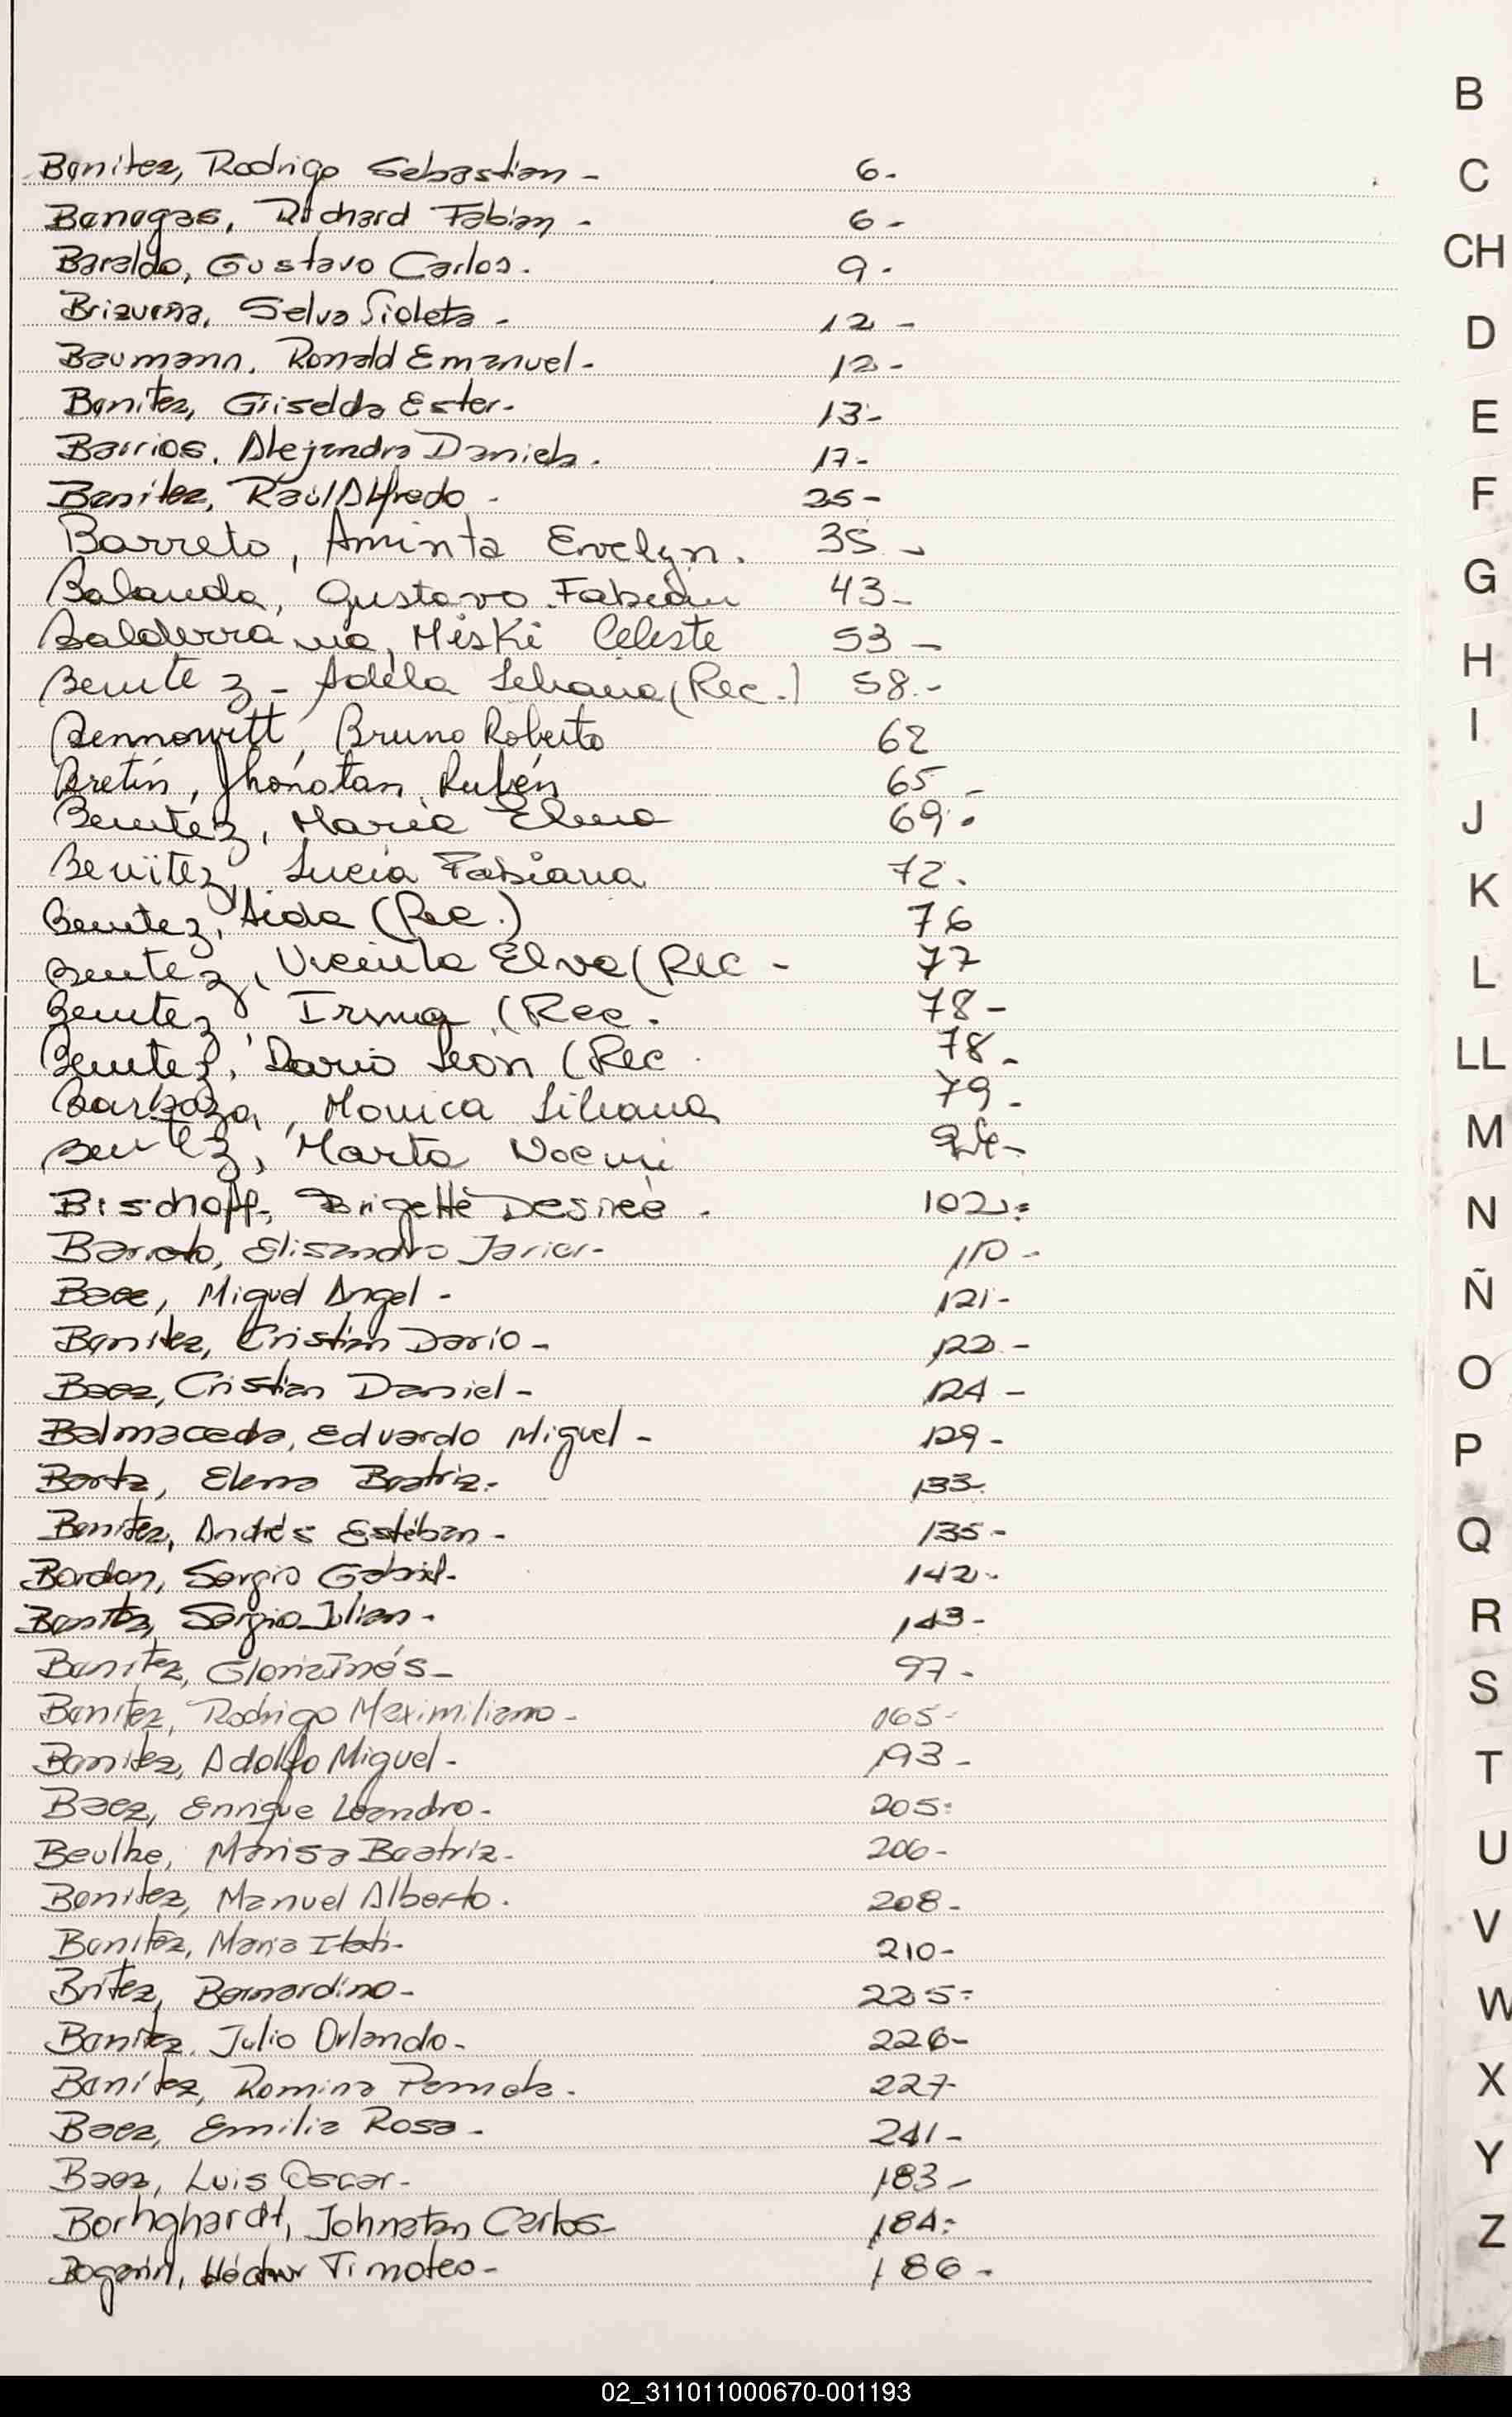 Benitez, Rodrigo Sebastian - 6.
Benegas, Richard Fabian - 6-
Baraldo, Gustavo Carlos. 9.
Brizueña, Selva Violeta - 12 -
Baumann, Ronald Emanuel - 12 -
Benitez, Griselda Ester. 13-
Barrios, Alejandra Daniela. 17-
Benitez, Raúl Alfredo - 25 -
Barreto, Aminta Evelyn. 35 -
Balanda, Gustavo Fabián 43-
Balderrama, Miski Celeste 53 -
Benitez - Adela Liliana (Rec.) 58.-
Bennowitt, Bruno Roberto 62
Bretín, Jhónatan Rubén 65 -
Benitez, Maria Elena 69.
Benitez, Lucía Fabiana 72.
Benitez, Aida (Rec.) 76
Benitez, Vicenta Elva (Rec - 77
Benitez, Irma (Rec. 78 -
Benitez, Dario León (Rec 78 -
Barboza, Monica Liliana 79 -
Benitez, Marta Noemi
Bischoff, Brigette Desireé - 102:
Barreto, Elisandro Javier - 110 -
Baez, Miguel Angel - 121-
Benitez, Cristian Dario - 122 -
Baez, Cristian Daniel - 124 -
Balmaceda, Eduardo Miguel - 129 -
Bartz, Elena Beatriz. 133.
Benitez, Andrés Estéban - 135 -
Bordon, Sergio Gabriel. 142-
Benitez, Sergio Julian - 143 -
Benitez, Gloria Inés - 97 -
Benitez, Rodrigo Maximiliano - 165-
Benitez, Adolfo Miguel - 193 -
Baez, Enrique Leandro - 205:
Beulke, Marisa Beatriz - 206 -
Benitez, Manuel Alberto. 208 -
Benitez, Maria Itati - 210 -
Britez, Bernardino - 225:
Benitez, Julio Orlando - 226-
Benitez, Romina Pamela. 227-
Baez, Emilia Rosa - 241 -
Baez, Luis Oscar - 183 -
Borhghardt, Johnatan Carlos - 184:
Bogarín, Héctor Timoteo - 186 -
B
C
CH
D
E
F
G
H
I
J
K
L
LL
M
N
Ñ
O
P
Q
R
S
T
U
V
W
X
Y
Z
02_311011000670-001193